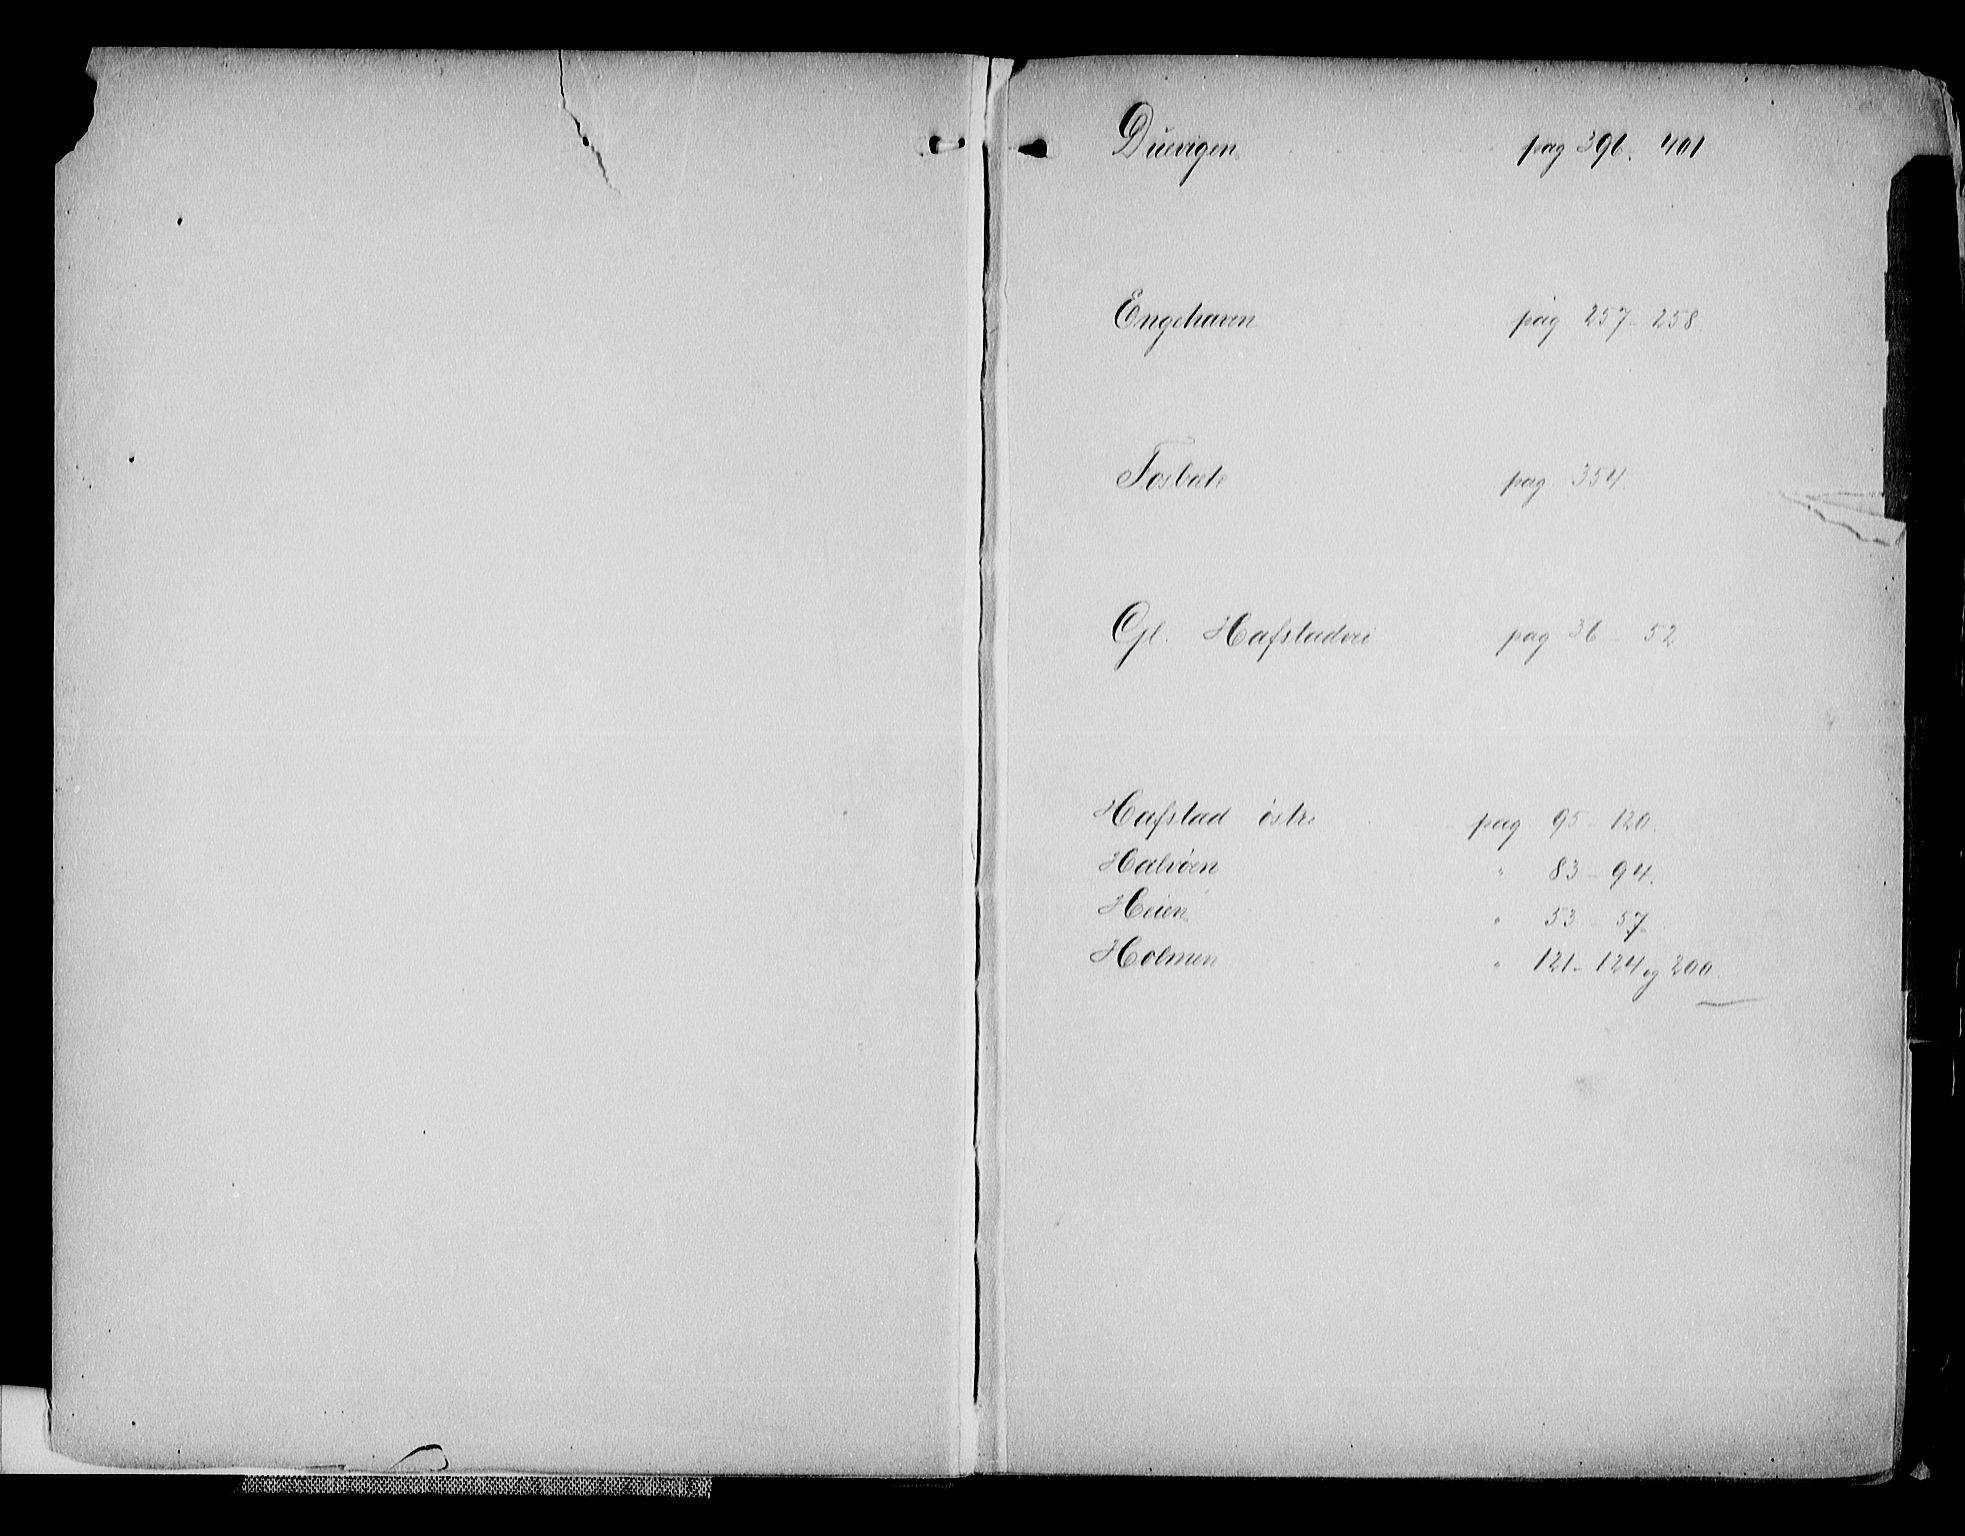 Duevigen pag 396. 401
Engehaven pag 257-258.
Fosbæk pag 354
Gl. Hafstadvei pag 36-52
Hafstad östre pag 95-120.
Halvöen " 83-94.
Heien " 53-57
Holmen " 121-124 og 200.